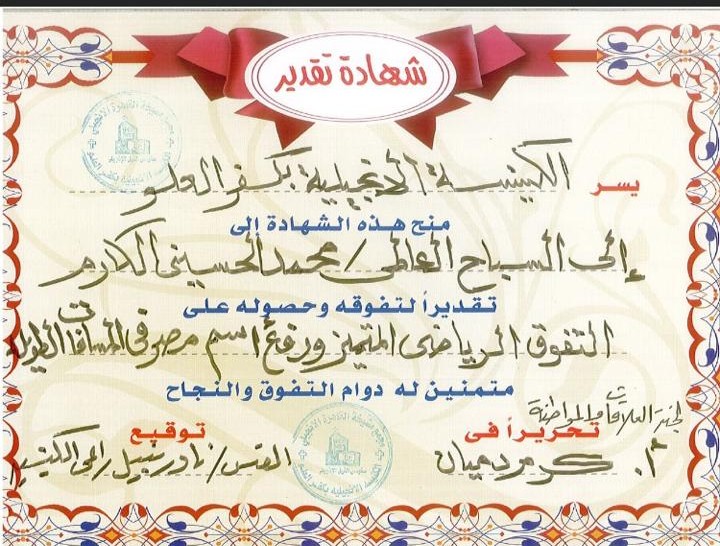 شهادة تقدير
يسر الكنيسة الإنجيلية بكفر العلو
منح هذه الشهادة إلى
إلى السباح العالمى / محمد الحسينى الكارم
تقديراً لتفوقه وحصوله على
التفوق الرياضى المتميز ورفع اسم مصر فى المسافات الطويلة
متمنين له دوام التفوق والنجاح
لجنة العلاقات والمواطنة
تحريراً فى
توقيع
أ.
القس / نادر نبيل راعى الكنيسة